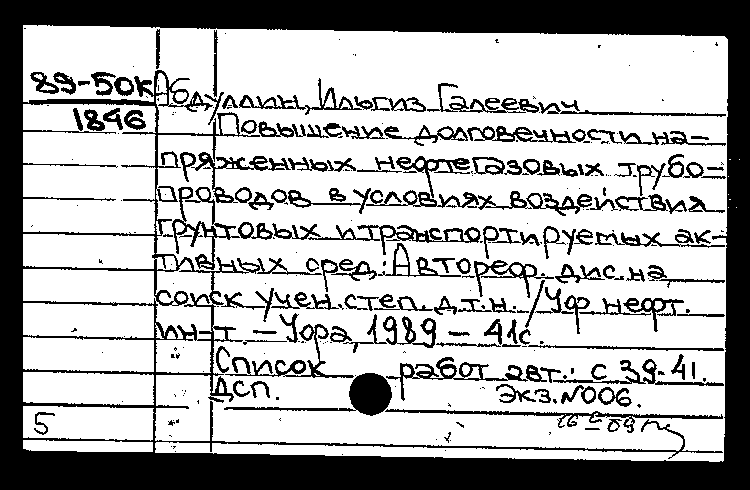 89-50К Абдуллин, Ильгиз Галеевич.
1846 Повышение долговечности на-
пряженных нефтегазовых трубо-
проводов в условиях воздействия
грунтовых и транспортируемых ак-
тивных сред: Автореф. дис. на
соиск учен. степ. д.т.н. / Уф. нефт.
ин-т. – Уфа, 1989 – 41с.
Список работ авт.: с 39-41.
ДСП. экз. №006.
5